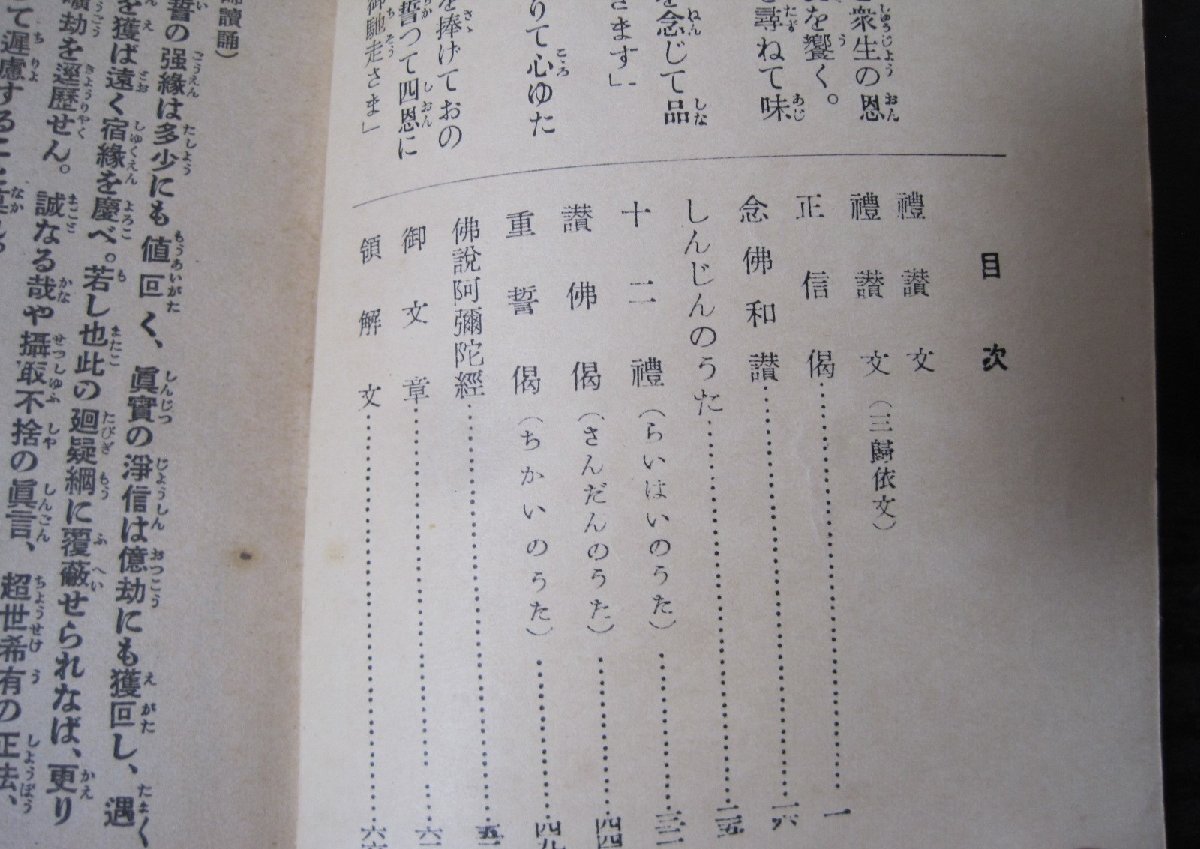 衆生の恩
を饗く。
尋ねて味
を念じて品
さます」
りて心ゆた
を捧げておの
誓つて四恩に
御馳走さま」
目次
禮讃文
禮讃文(三歸依文)
正信偈……一
念佛和讃……一六
しんじんのうた……二五
十二禮(らいはいのうた)……三二
讃佛偈(さんだんのうた)……四四
重誓偈(ちかいのうた)……四九
佛說阿彌陀經……五一
御文章
領解文
讀誦)
誓の强緣は多少にも値叵く、眞實の淨信は億劫にも獲叵し、遇
を獲ば遠く宿緣を慶べ。若し也此の廻疑網に覆蔽せられなば、更り
曠劫を逕歷せん。誠なる哉や攝取不捨の眞言、超世希有の正法、
て遲慮する